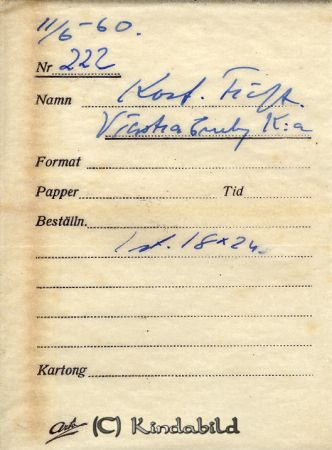 11/6-60.
Nr 222
Namn Konf. Tidf.
Västra Eneby K:a
Format
Papper Tid
Beställn.
1 st. 18x24.
Kartong
Ark (C) Kindabild